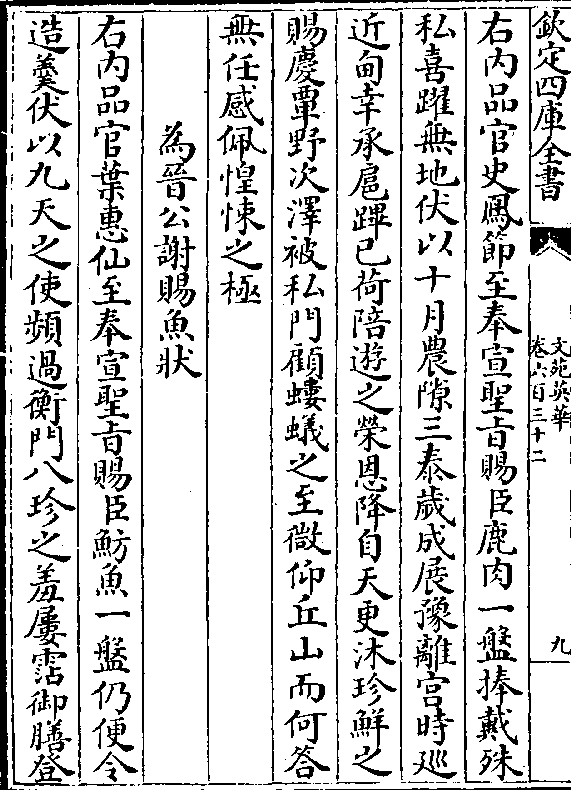 欽定四庫全書
文苑英華
卷六百三十二
九
右内品官史鳳節至奉宣聖旨賜臣鹿肉一盤捧戴殊
私喜躍無地伏以十月農隙三泰歲成展豫離宮時廵
近甸幸承扈蹕已荷陪遊之榮恩降自天更沐珍鮮之
賜慶覃野次澤被私門顧螻蟻之至微仰丘山而何答
無任感佩惶悚之極
為晉公謝賜魚狀
右内品官葉惠仙至奉宣聖旨賜臣魴魚一盤仍便令
造羮伏以九天之使頻過衡門八珍之羞屢霑御膳登